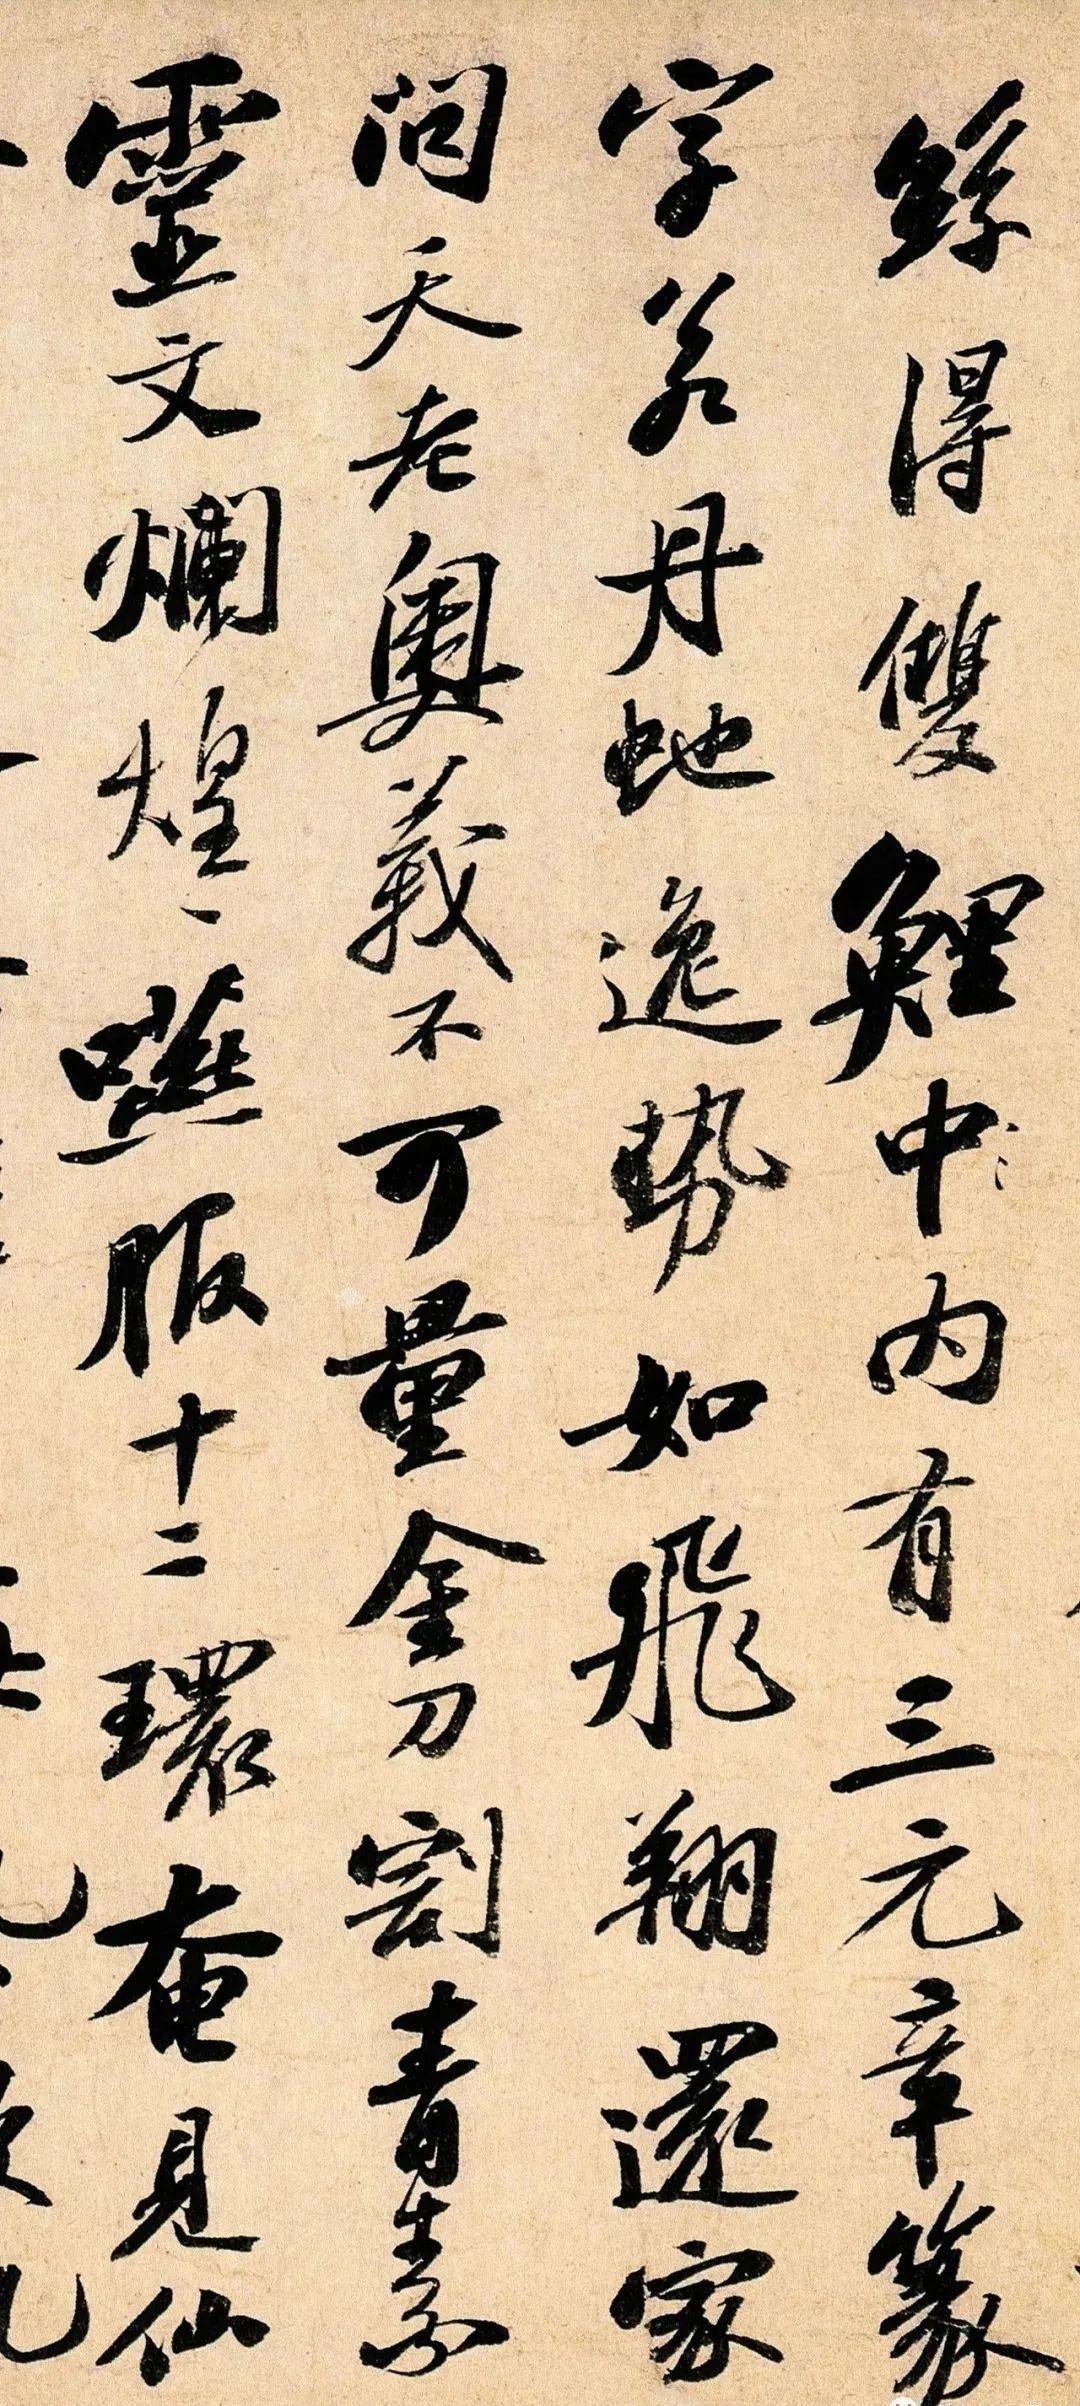 鯀得雙鯉魚中〻內有三元章篆
字若丹蛇逸勢如飛翔還家
問天老奧義不可量金刀割青素
靈文爛煌〻嚥服十二環奄見仙